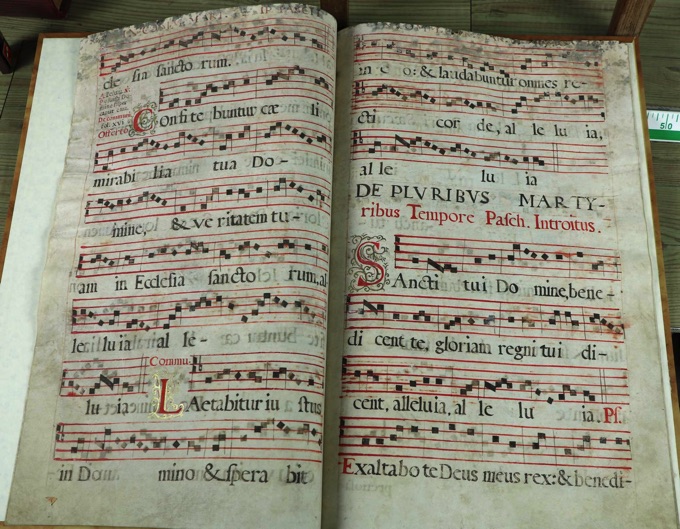 cle sia sancto rum.
Offerto
Confite buntur cæ li
mirabi lia tua Do-
mine, & ve ritatem tu-
am in Ecclesia sancto rum, al
le lu ia al le-
Commu.
lu ia
Lætabitur iu stus
in Dom mino & spera bit
in e o: & laudabuntur omnes re-
cti cor de, al le lu ia,
al lei lu ia
DE PLURIBUS MARTY-
ribus Tempore Pasch. Introitus.
SAncti tui Do mine, bene-
di cent te, gloriam regni tui di-
cent, alleluia, al le lu ia. Ps.
Exaltabo te Deus meus rex: & benedi-
50